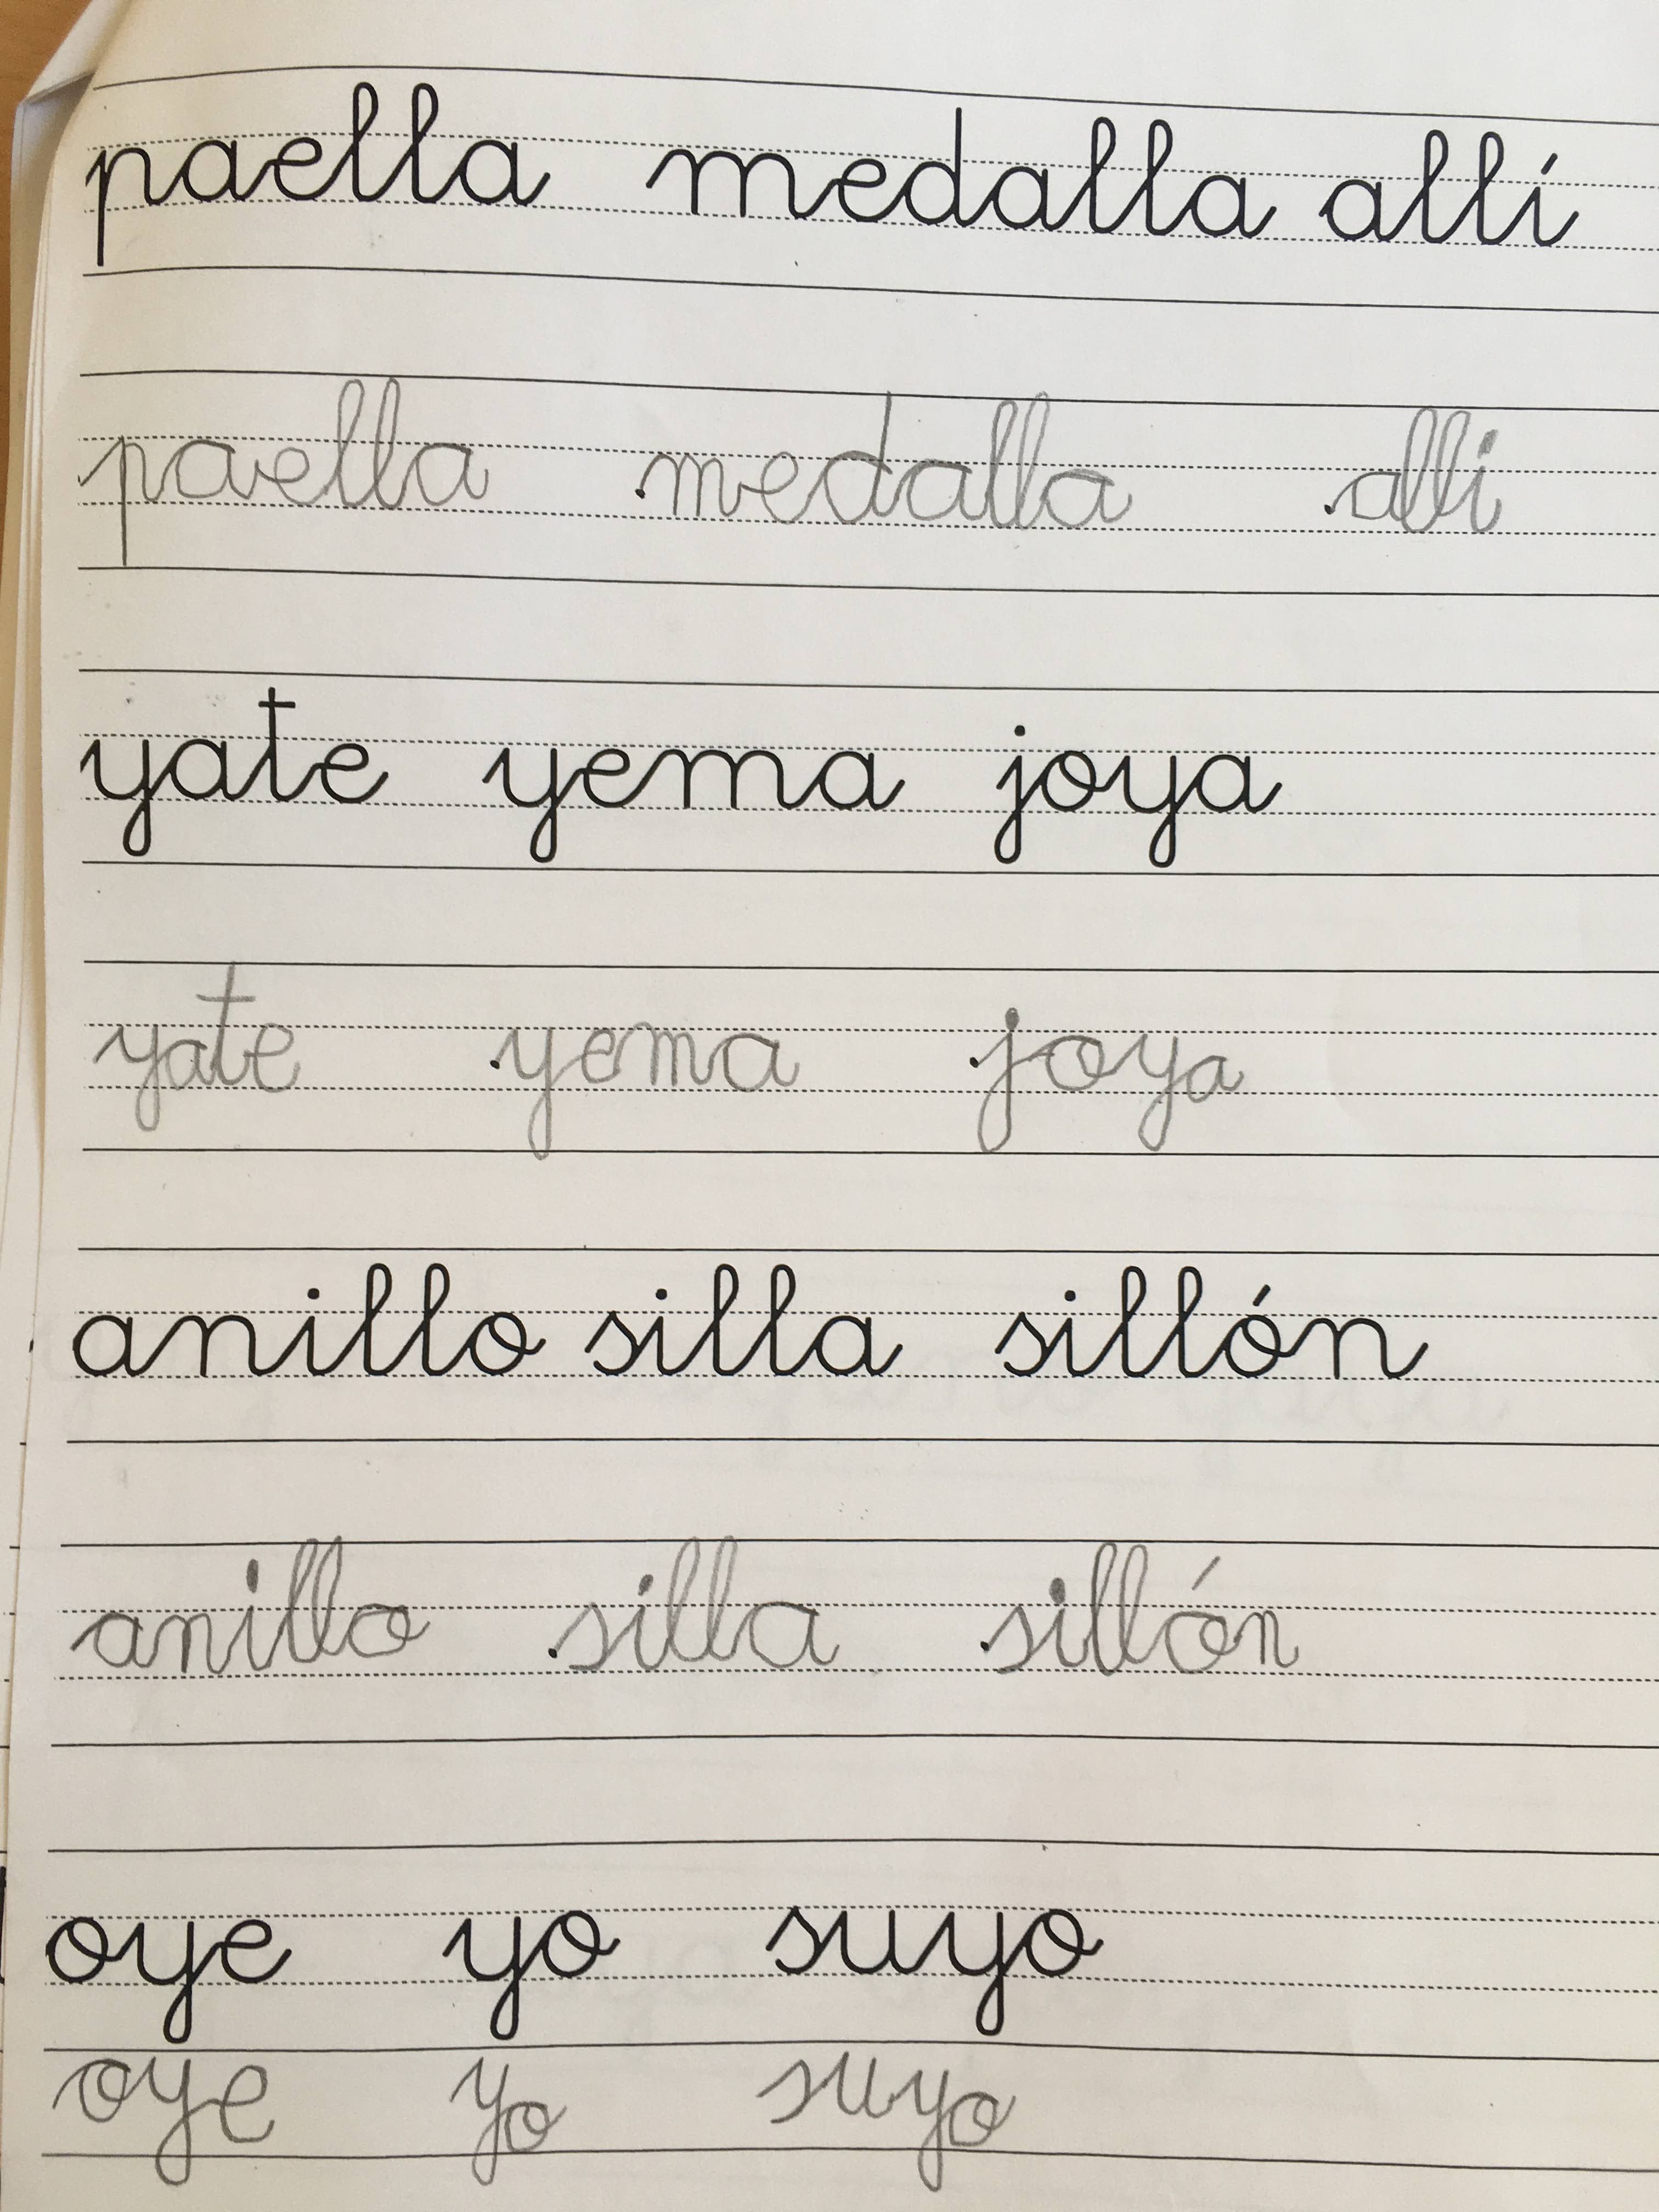 paella medalla allí
paella medalla alli
yate yema joya
yate yema joya
anillo silla sillón
anillo silla sillón
oye yo suyo
oye yo suyo